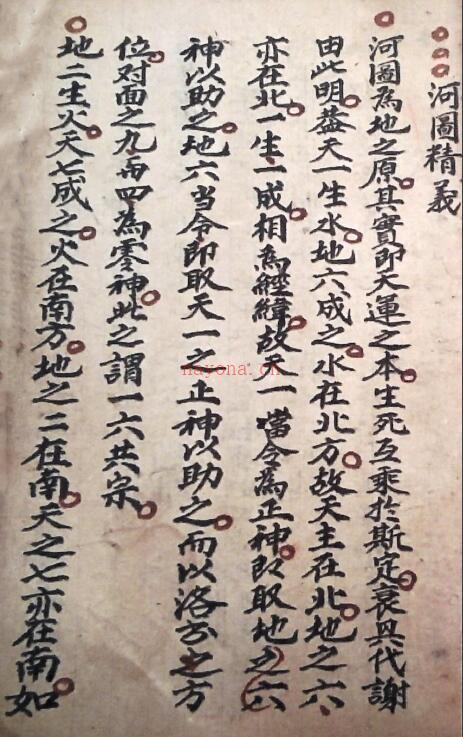 河圖精義
河圖為地之原。其實即天運之本。生死互乘於斯定。衰興代謝
由此明。益天一生水。地六成之。水在北方。故天主在北。地之六
亦在北。一生一成。相為經緯。故天一噹令為正神。即取地之六
神以助之。地六当令即取天一之正神以助之。而以洛分之方
位。对面之九而四為零神。此之謂一六共宗。
地二生火。天七成之。火在南方。地之二在南。天之七亦在南。如
nayona.cn